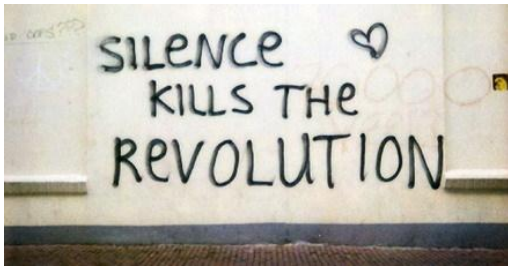 SILENCE
KILLS THE
REVOLUTION